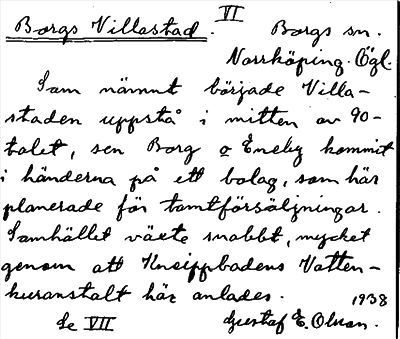 VI
Borgs Villastad. Borgs sn.
Norrköping. Ögl.
Som nämnt började Villa-
staden uppstå i mitten av 90-
talet, sen Borg o Eneby kommit
i händerna på ett bolag, som här
planerade för tomtförsäljningar.
Samhället växte snabbt, mycket
genom att Kneippbadens Vatten-
kuranstalt här anlades. 1938
Se VII Gustaf E. Olsson.